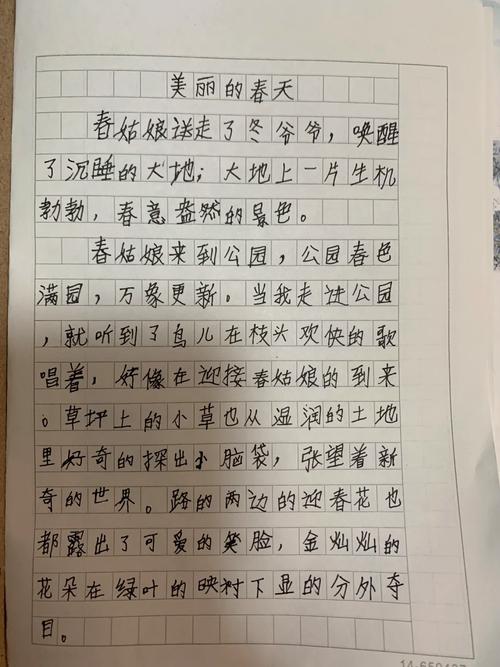 美丽的春天
春姑娘送走了冬爷爷，唤醒
了沉睡的大地；大地上一片生机
勃勃，春意盎然的景色。
春姑娘来到公园，公园春色
满园，万象更新。当我走进公园
，就听到了鸟儿在枝头欢快的歌
唱着，好像在迎接春姑娘的到来
。草坪上的小草也从湿润的土地
里好奇的探出小脑袋，张望着新
奇的世界。路的两边的迎春花也
都露出了可爱的笑脸，金灿灿的
花朵在绿叶的映衬下显的分外夺
目。